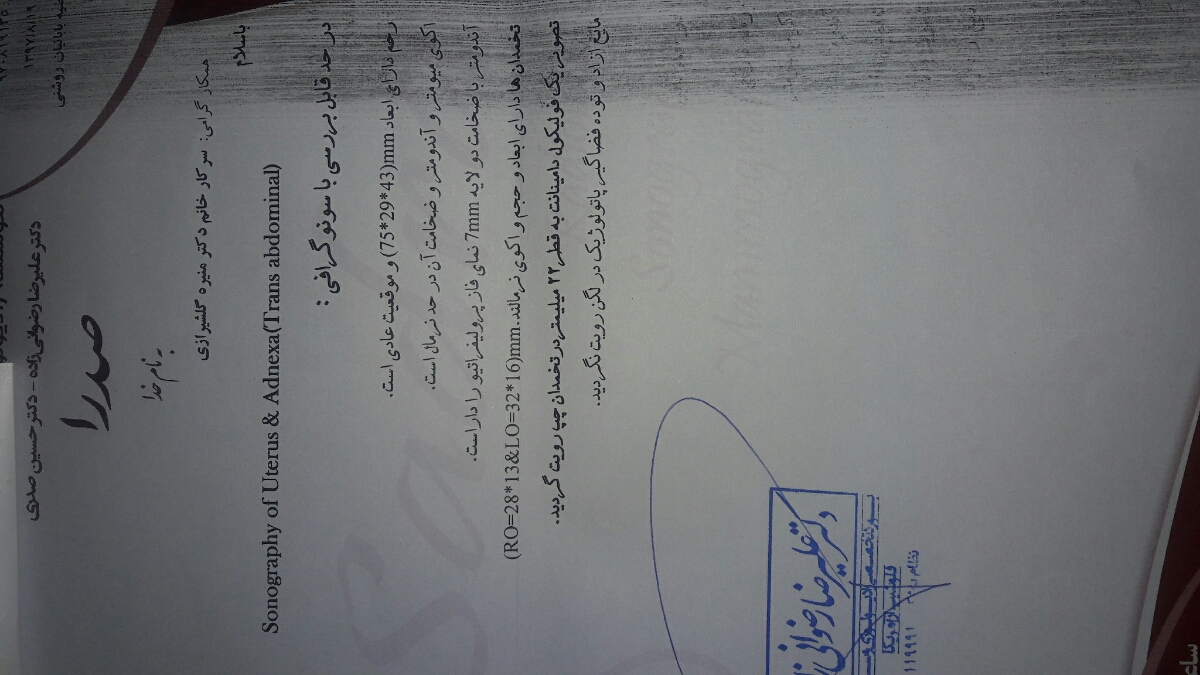 دکتر علیرضا رضوانی زاده - دکتر حسین صدری
۱۳۹۷/۸/۱۹
صدرا
به نام خدا
همکار گرامی: سرکار خانم دکتر منیره گلشیرازی
باسلام
Sonography of Uterus & Adnexa(Trans abdominal)
در حد قابل بررسی با سونوگرافی :
رحم دارای ابعاد 75*29*43)mm) و موقعیت عادی است.
اکوی میومتر و آندومتر و ضخامت آن در حد نرمال است.
آندومتر با ضخامت دو لایه 7mm نمای فاز پرولیفراتیو را دارا است.
تخمدان ها دارای ابعاد و حجم و اکوی نرمالند.(RO=28*13&LO=32*16)mm
تصویر یک فولیکول دامینانت به قطر ۲۲ میلیمتر در تخمدان چپ رویت گردید.
مایع ازاد و توده فضاگیر پاتولوژیک در لگن رویت نگردید.
دکتر علیرضا رضوانی
۱۱۹۹۹۱